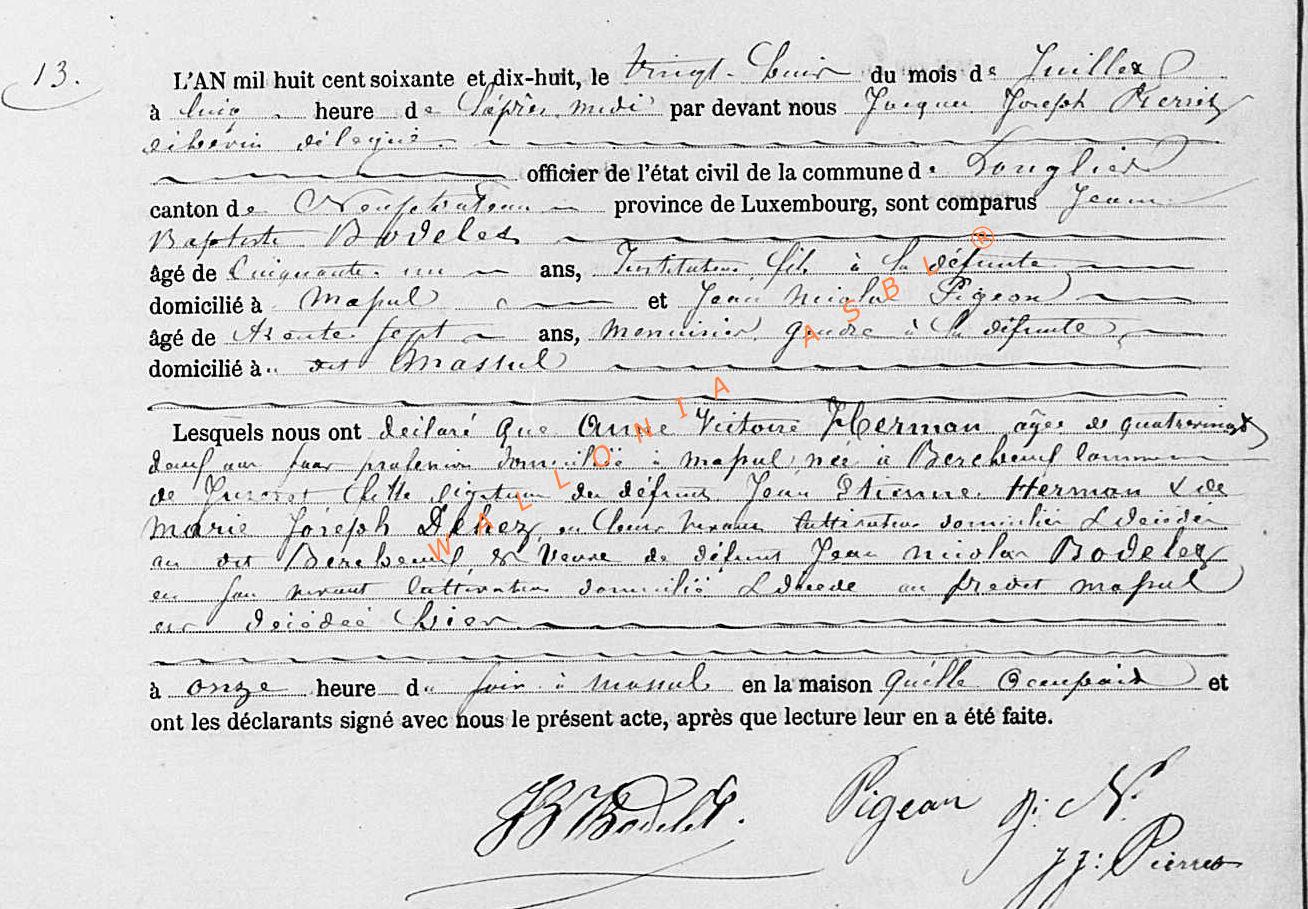 13.
L'AN mil huit cent soixante et dix-huit, le Vingt-huit du mois de Juillet
à cinq heure de l'après-midi par devant nous Jacques Joseph Pierret
échevin délégué
officier de l'état civil de la commune de Longlier
canton de Neufchâteau province de Luxembourg, sont comparus Jean
Baptiste Bodelet
âgé de Cinquante un ans, Instituteur, fils à la défunte
domicilié à Massul et Jean Nicolas Pigeon
âgé de trente sept ans, menuisier, gendre à la défunte,
domicilié à dit Massul
Lesquels nous ont déclaré que Anne Victoire Herman âgée de quatrevingt
neuf ans sans profession domiciliée à Massul, née à Bercheux commune
de Juseret fille légitime des défunts Jean Etienne Herman & de
Marie Joseph Dehez, en leur vivant cultivateurs domiciliés & décédés
au dit Bercheux, & Veuve de défunt Jean Nicolas Bodelet
en son vivant cultivateur domicilié & décédé au predit Massul
est décédée hier
à onze heure du soir à Massul en la maison qu'elle occupait et
ont les déclarants signé avec nous le présent acte, après que lecture leur en a été faite.
JB Bodelet. Pigeon J. N.
JJ: Pierret
WALLONIA ASBL ®